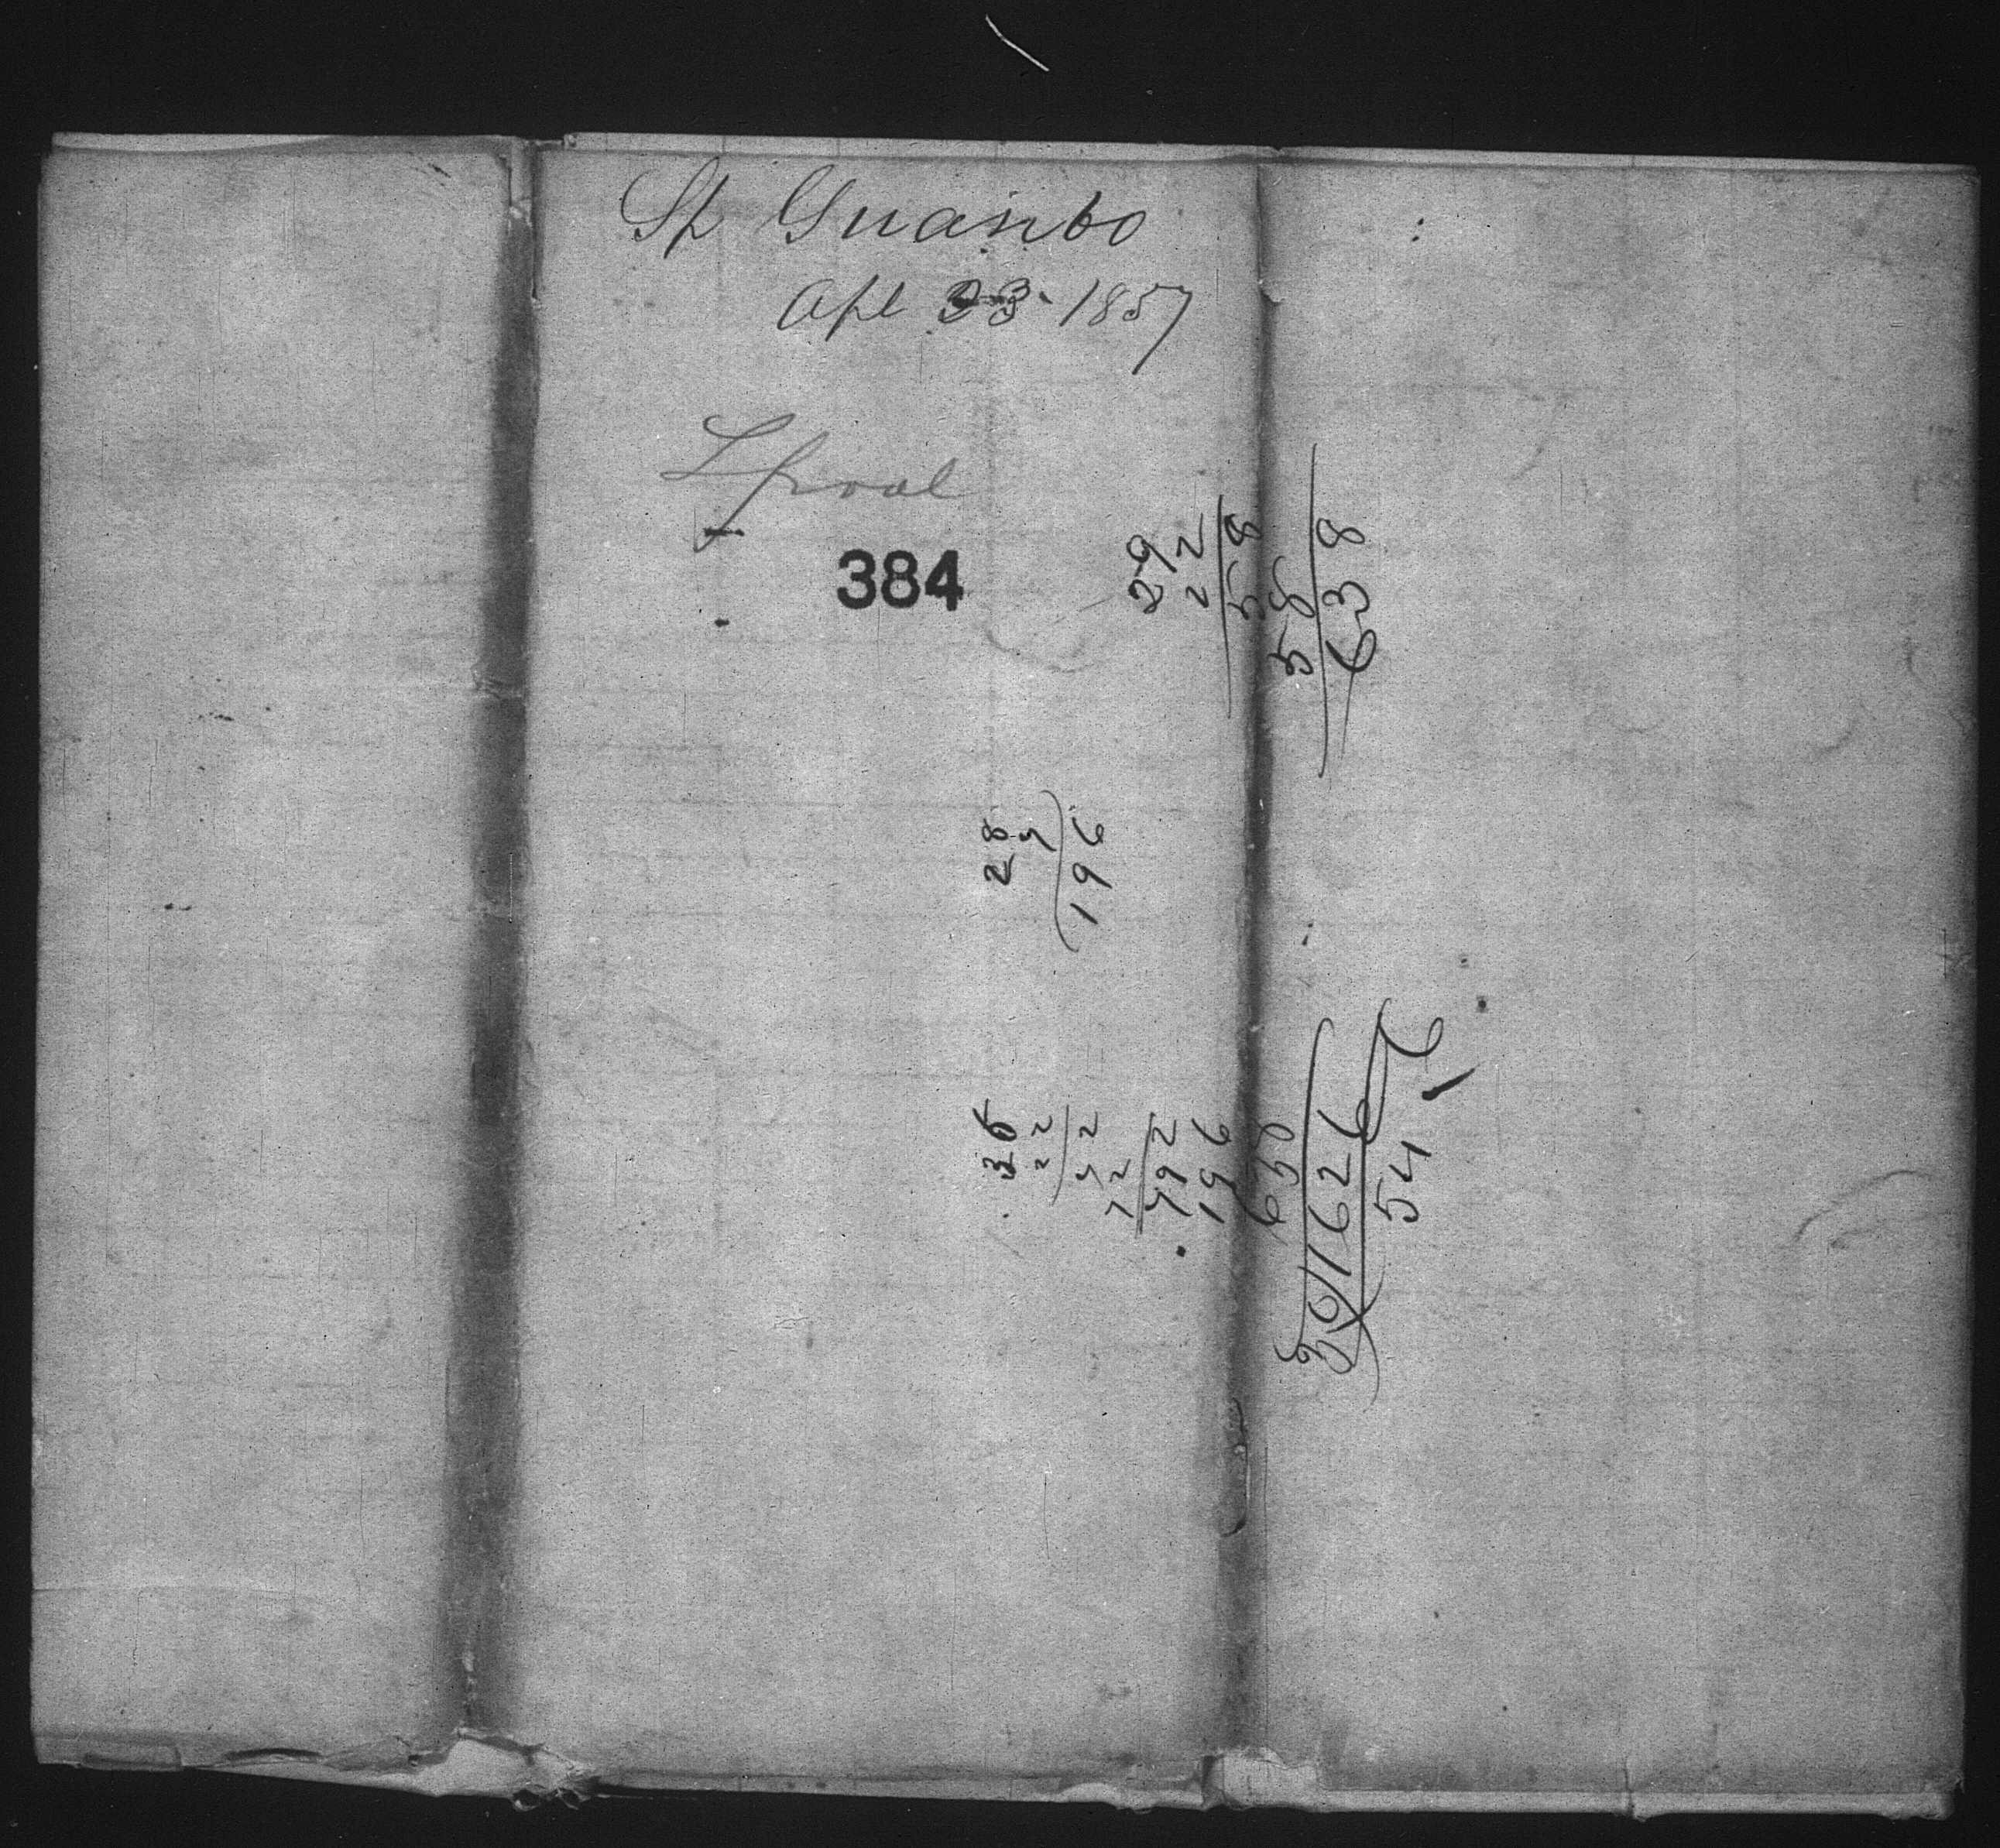 Sh Guanbo
Apl 23 1857
Lpool
384
29
22
58
58
638
28
7
196
36
22
72
72
792
196
638
30/1626
54
6